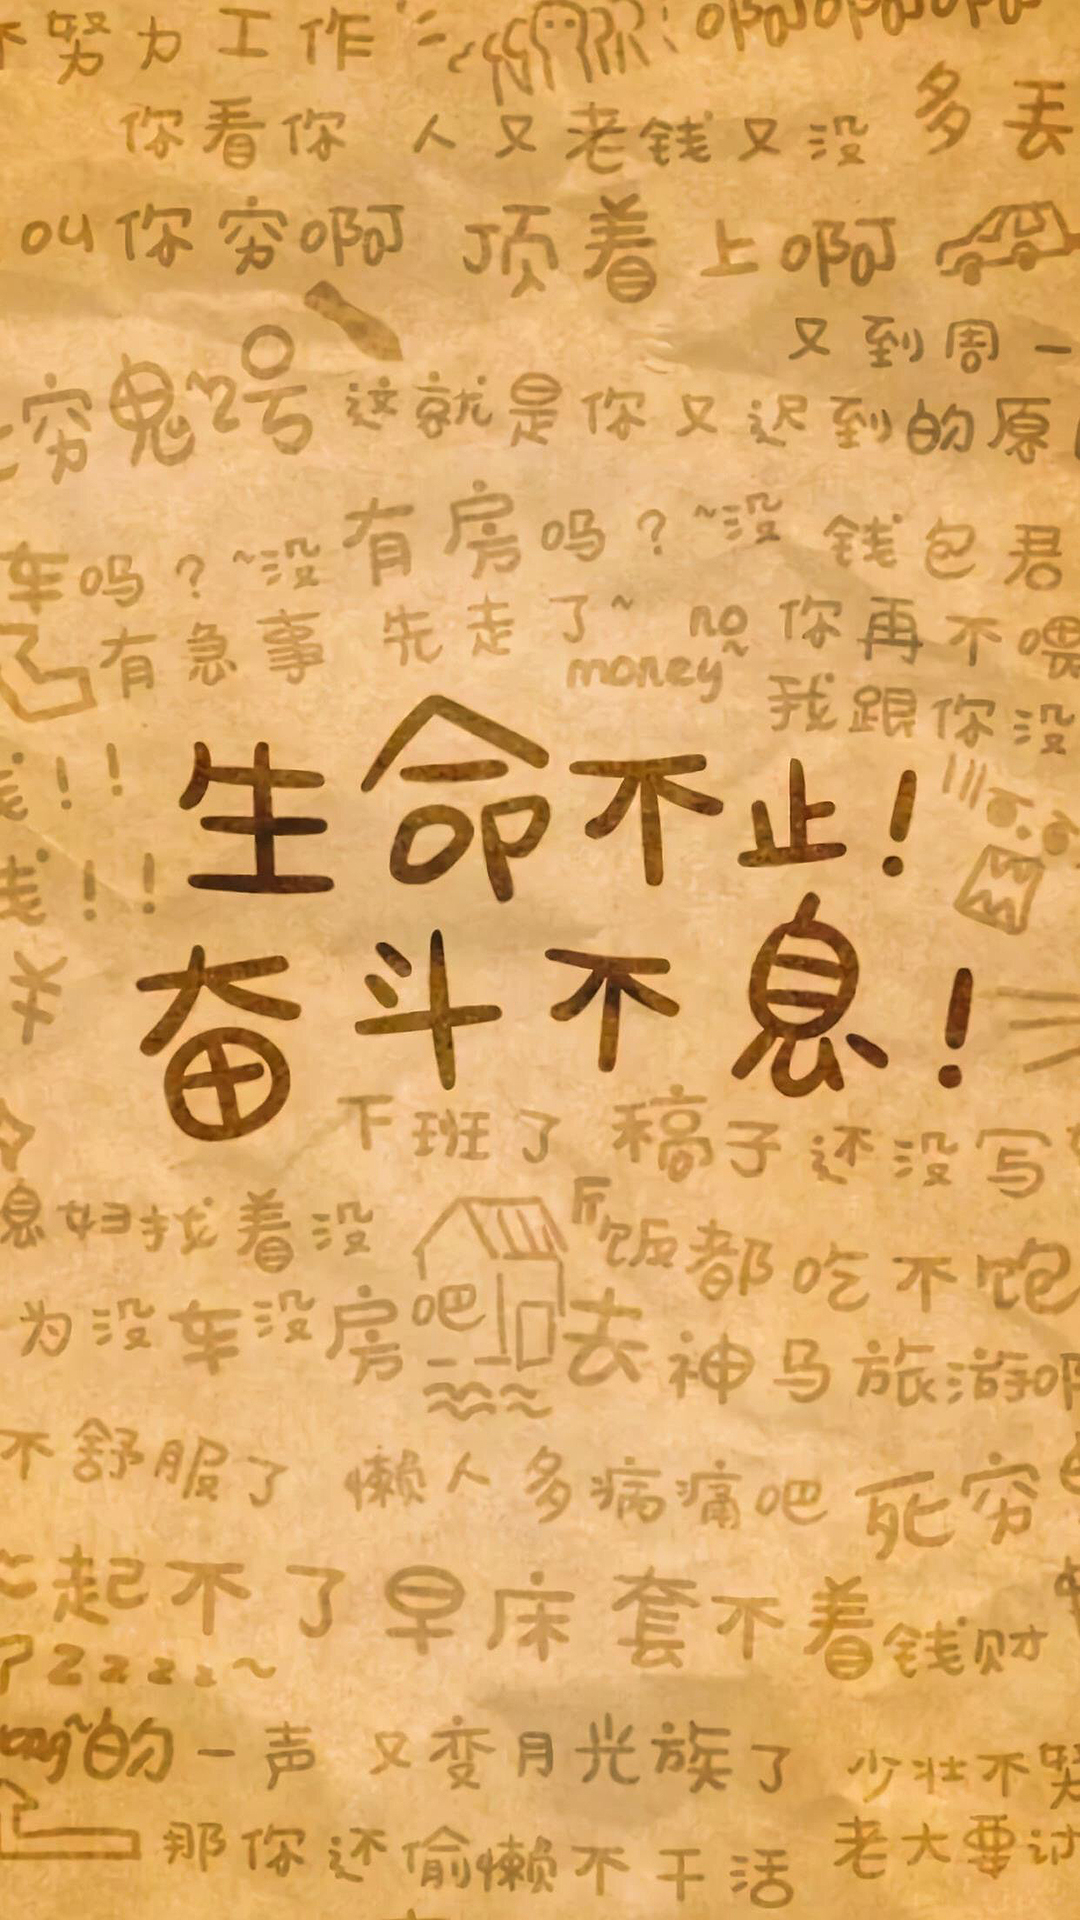 不努力工作 啊啊啊
你看你 人又老钱又没 多丢
叫你穷啊 顶着上啊
又到周一
穷鬼~2号 这就是你又迟到的原
车吗?~没 有房吗?~没 钱包君
有急事 先走了~ no money~ 你再不喂
我跟你没
生命不止!
钱!!
钱!!
奋斗不息!
¥
下班了 稿子还没写
息妇找着没 饭都吃不饱
为没车没房吧 去神马旅游啊
不舒服了 懒人多病痛吧 死穷
起不了早床 套不着钱财
zzzz~
的一声 又变月光族了 少壮不努
那你还偷懒不干活 老大要讨